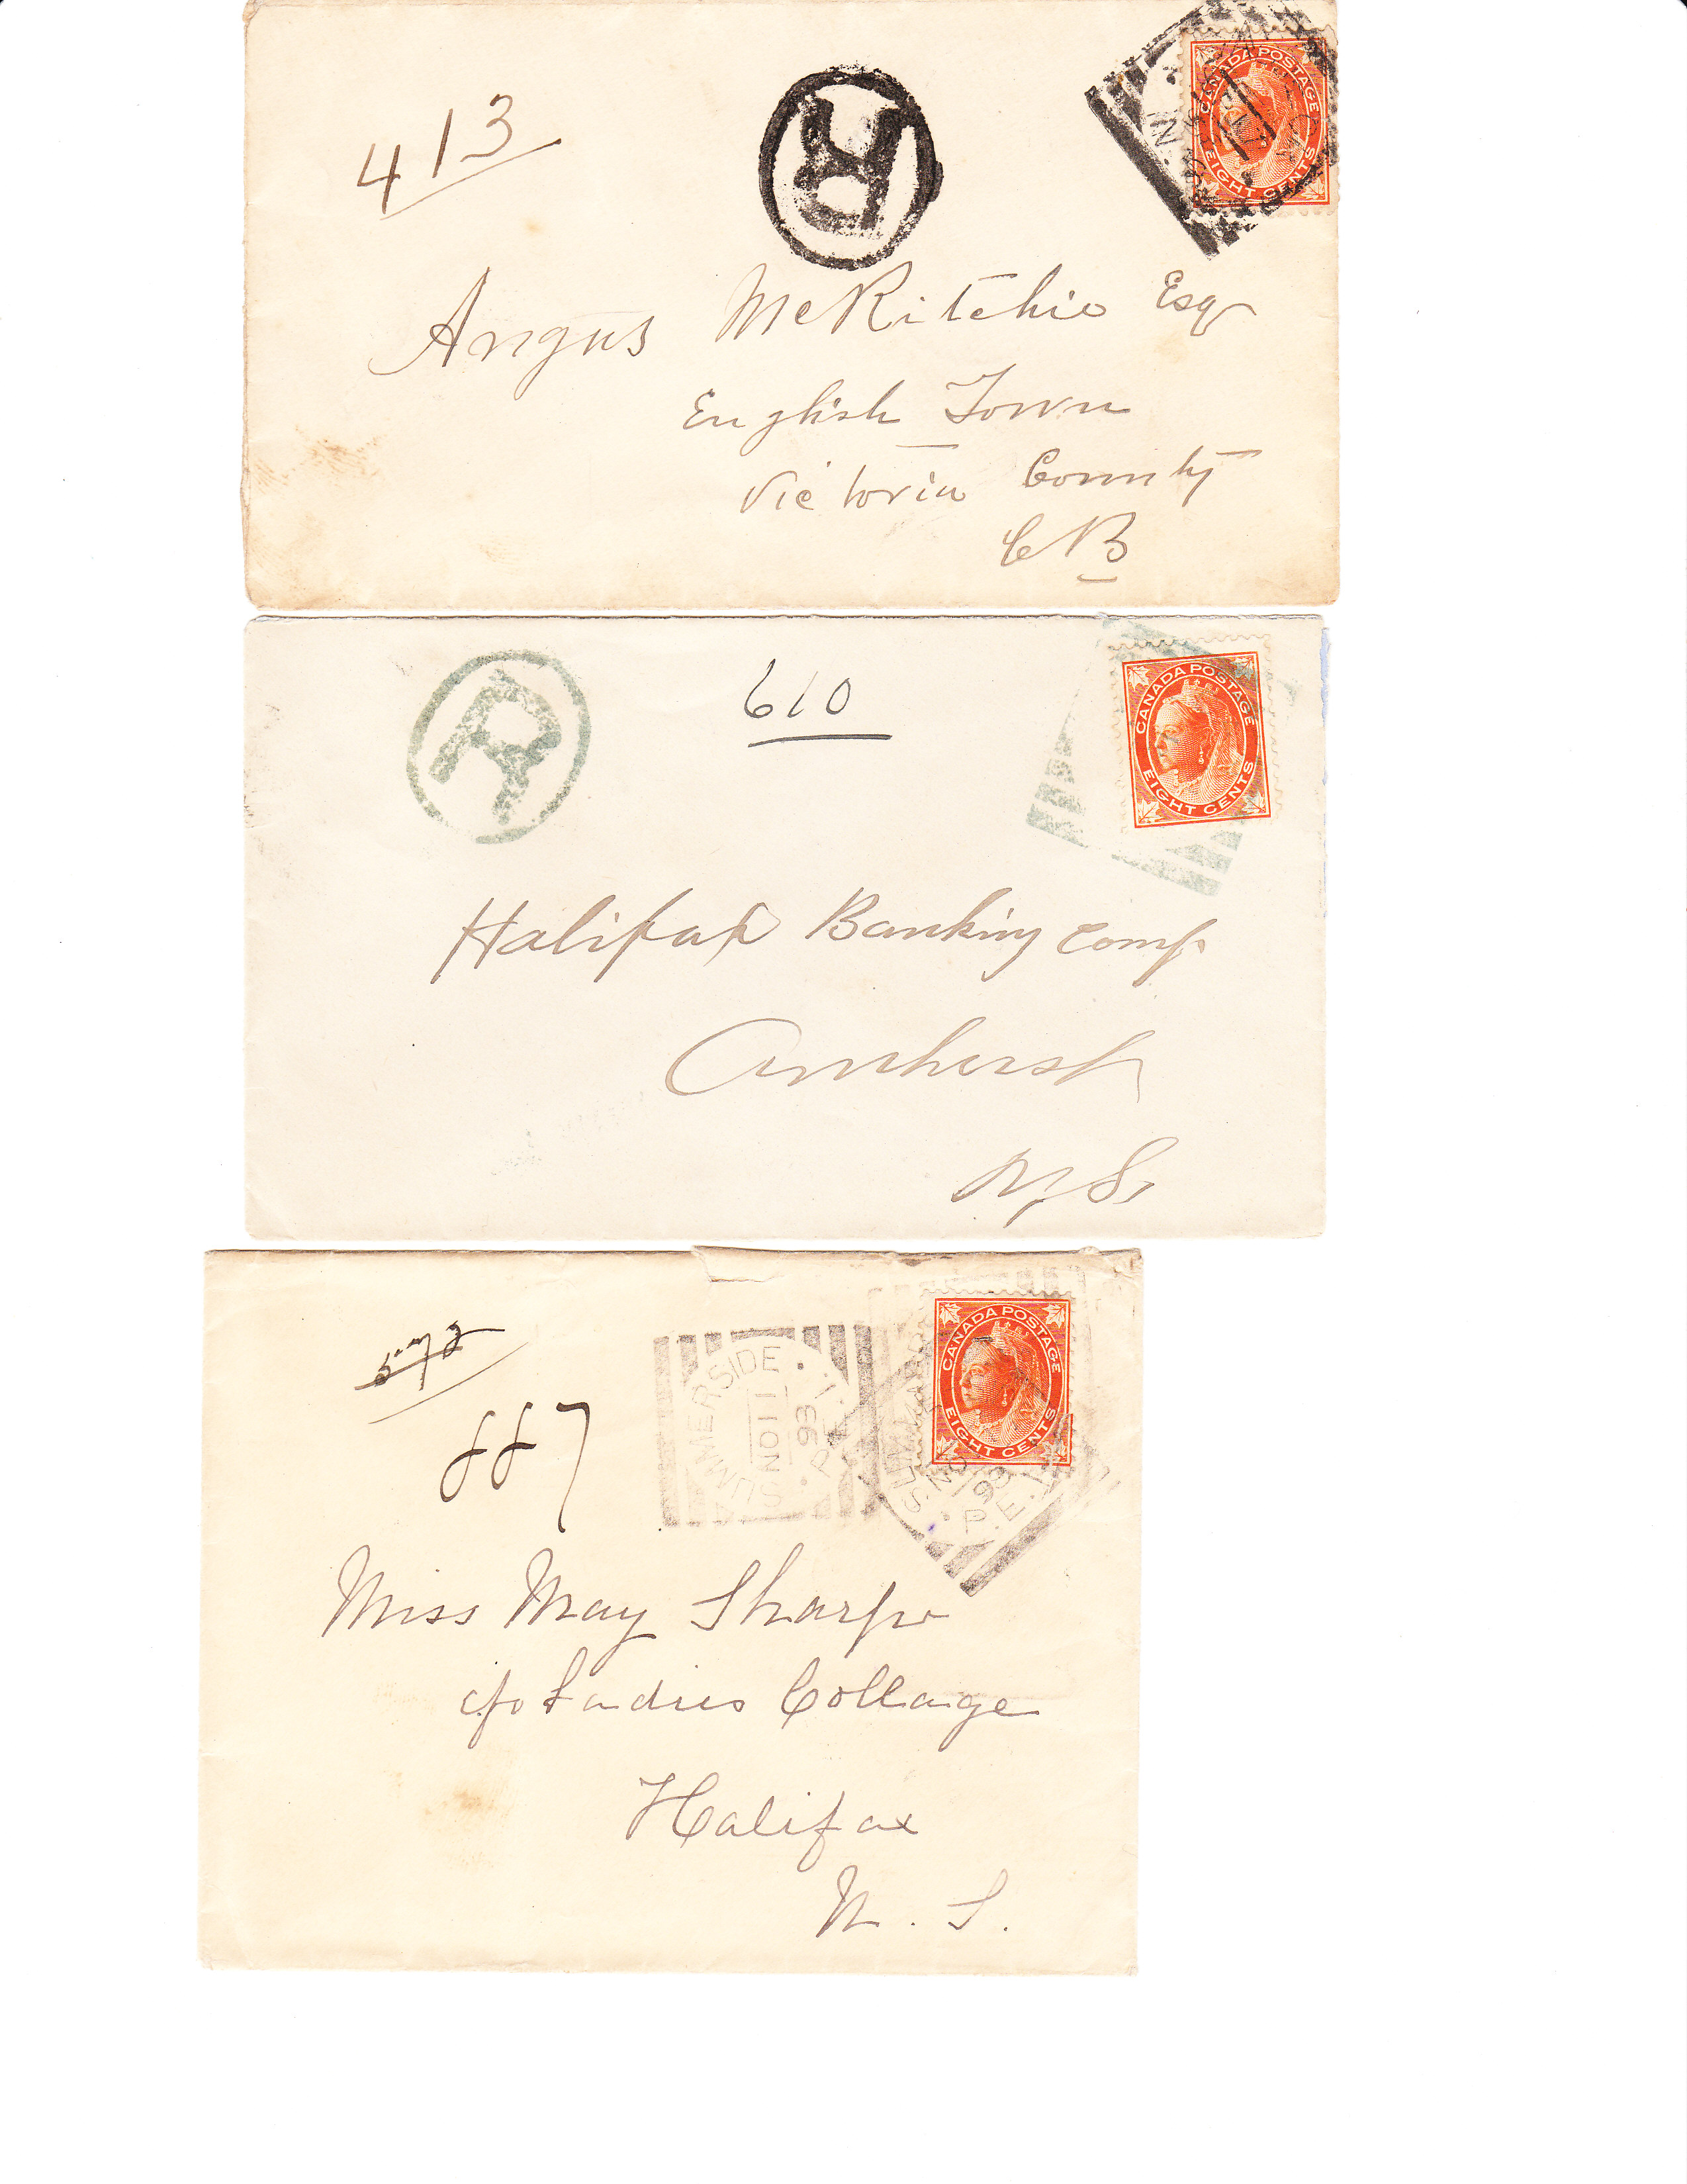 413
R
CANADA POSTAGE
EIGHT CENTS
Angus McRitchie Esq
English Town
Victoria County
CB
R
610
CANADA POSTAGE
EIGHT CENTS
Halifax Banking Comp
Amherst
N.S.
572
887
SUMMERSIDE . P.E.I.
NO 11
98
CANADA POSTAGE
EIGHT CENTS
NO
98
P.E.I.
Miss May Sharpe
c/o Ladies Collage
Halifax
N. S.